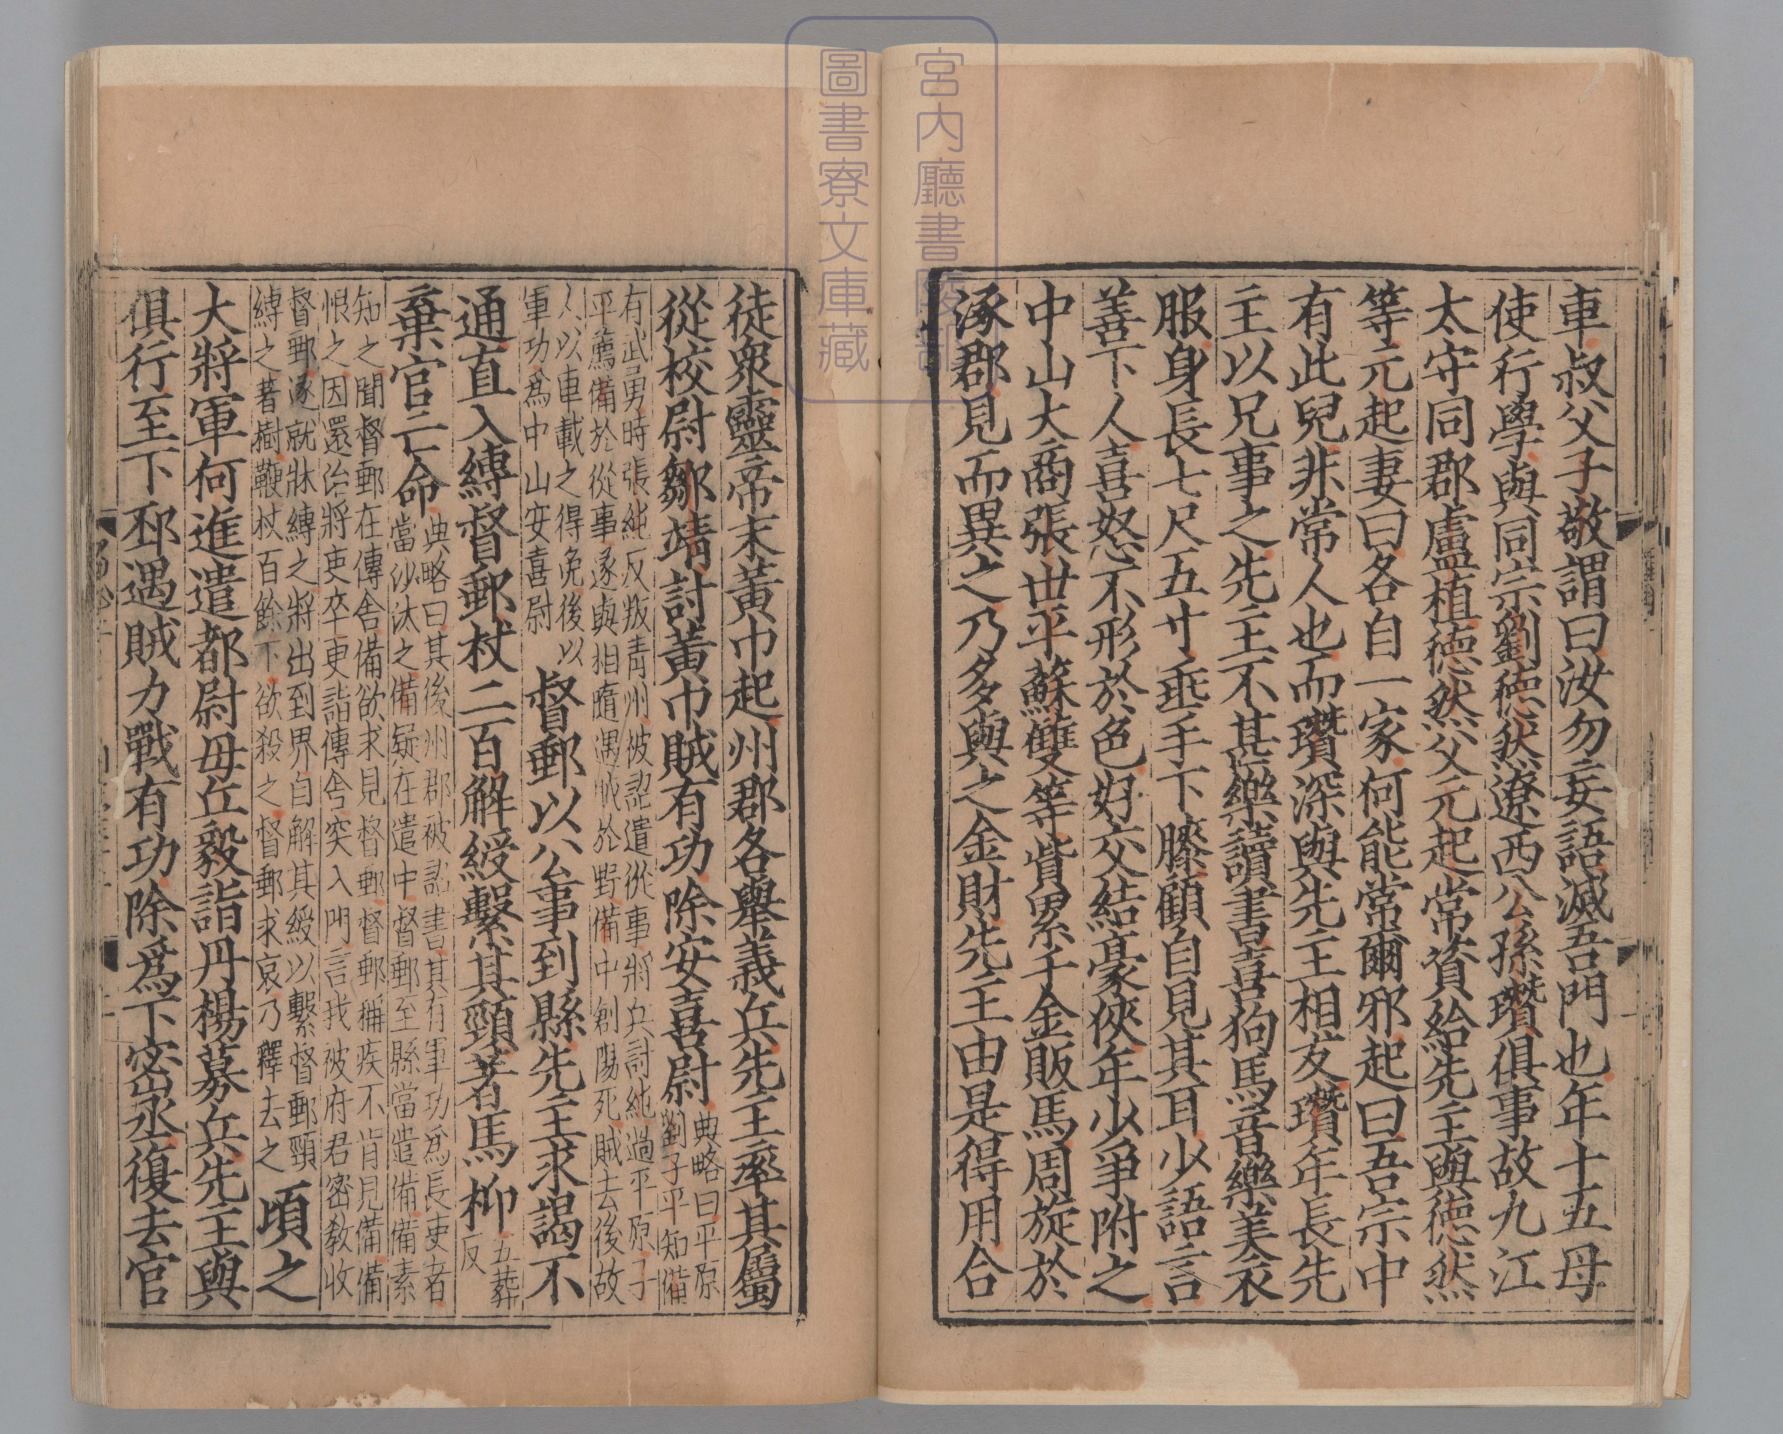 車叔父子敬謂曰汝勿妄語滅吾門也年十五母
使行學與同宗劉德然遼西公孫瓚俱事故九江
太守同郡盧植德然父元起常資給先主與德然
等元起妻曰各自一家何能常爾邪起曰吾宗中
有此兒非常人也而瓚深與先主相友瓚年長先
主以兄事之先主不甚樂讀書喜狗馬音樂美衣
服身長七尺五寸垂手下膝顧自見其耳少語言
善下人喜怒不形於色好交結豪俠年少爭附之
中山大商張世平蘇雙等貲累千金販馬周旋於
涿郡見而異之乃多與之金財先主由是得用合
徒衆靈帝末黃巾起州郡各舉義兵先主率其屬
從校尉鄒靖討黃巾賊有功除安喜尉
典略曰平原
劉子平知備
有武勇時張純反叛青州被詔遣從事將兵討純過平原子
平薦備於從事遂與相隨遇賊於野備中創陽死賊去後故
人以車載之得免後以
軍功爲中山安喜尉
督郵以公事到縣先主求謁不
通直入縛督郵杖二百解綬繫其頸著馬柳
五葬
反
棄官亡命
典略曰其後州郡被詔書其有軍功爲長吏者
當沙汰之備疑在遣中督郵至縣當遣備備素
知之聞督郵在傳舍備欲求見督郵督郵稱疾不肯見備備
恨之因還治將吏卒更詣傳舍突入門言我被府君密敎收
督郵遂就牀縛之將出到界自解其綬以繫督郵頸
縛之著樹鞭杖百餘下欲殺之督郵求哀乃釋去之
頃之
大將軍何進遣都尉毋丘毅詣丹楊募兵先主與
俱行至下邳遇賊力戰有功除爲下密丞復去官
宮内廳書陵部
圖書寮文庫藏